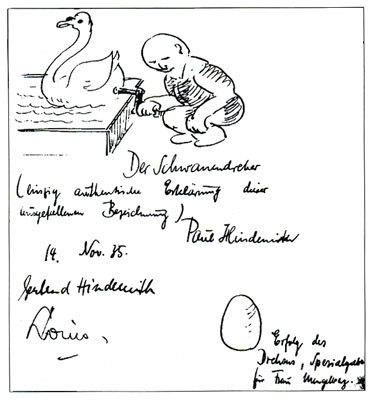 Der Schwanendreher
(einzig authentische Erklärung dieser
ausgefallenen Bezeichnung)
Paul Hindemith
14. Nov. 35.
Gertrud Hindemith
Erfolg des
Drehens, Spezialgabe
für Frau Mengelberg.